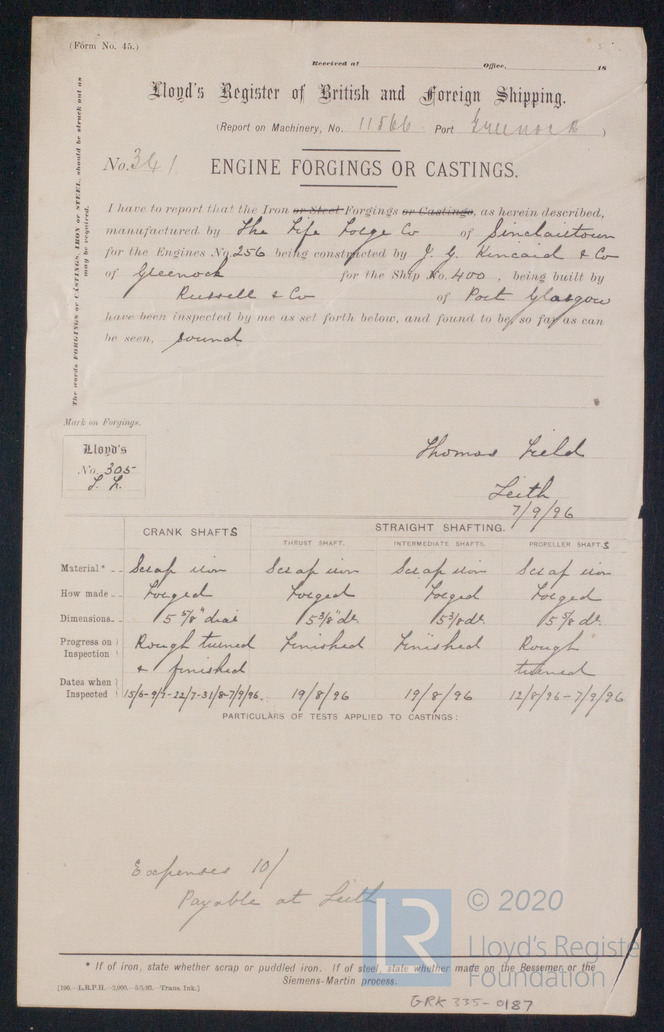 (Form No. 45.)
Received at Office, 18
Lloyd's Register of British and Foreign Shipping.
(Report on Machinery, No. 11866 Port Greenock)
No. 341 ENGINE FORGINGS OR CASTINGS.
The words FORGINGS or CASTINGS, IRON or STEEL, should be struck out as
may be required.
I have to report that the Iron or Steel Forgings or Castings, as herein described,
manufactured by The Fife Forge Co of Sinclairtown
for the Engines No. 256 being constructed by J. G. Kincaid & Co
of Greenock for the Ship No. 400, being built by
Russell & Co of Port Glasgow
have been inspected by me as set forth below, and found to be, so far as can
be seen, sound
Mark on Forgings.
Lloyd's
No. 305
Thomas Field
Leith
7/9/96
CRANK SHAFTS STRAIGHT SHAFTING.
THRUST SHAFT. INTERMEDIATE SHAFTS. PROPELLER SHAFTS
Material* Scrap iron Scrap iron Scrap iron Scrap iron
How made Forged Forged Forged Forged
Dimensions 5 5/8" dia 5 3/8" dr 5 3/8 dr 5 5/8 dr
Progress on Inspection Rough turned & finished Finished Finished Rough turned
Dates when Inspected 15/6-9/7-22/7-31/8-7/9/96. 19/8/96 19/8/96 12/8/96-7/9/96
PARTICULARS OF TESTS APPLIED TO CASTINGS:
Expenses 10/
Payable at Leith
© 2020
LR Lloyd's Registe
Foundation
* If of iron, state whether scrap or puddled iron. If of steel, state whether made on the Bessemer or the
Siemens-Martin process.
[190.-L.R.P.H.-2,000.-5/5/93.-Trans. Ink.]
GRK 335-0187